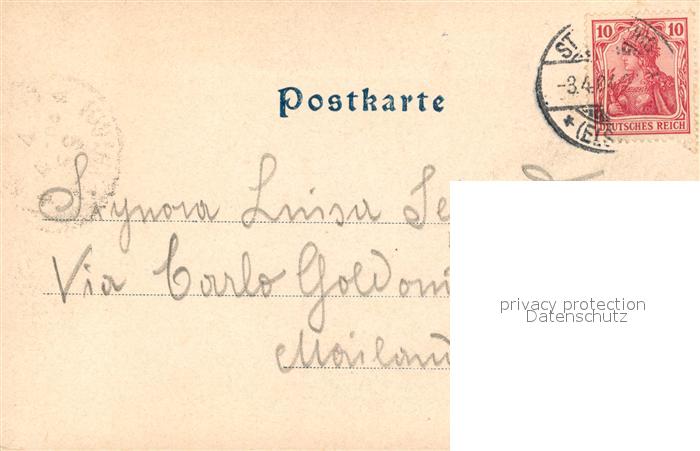 10 10
DEUTSCHES REICH
-3.4.04
Postkarte
Signora Luisa
Via Carlo Goldoni
Mailand
privacy protection
Datenschutz